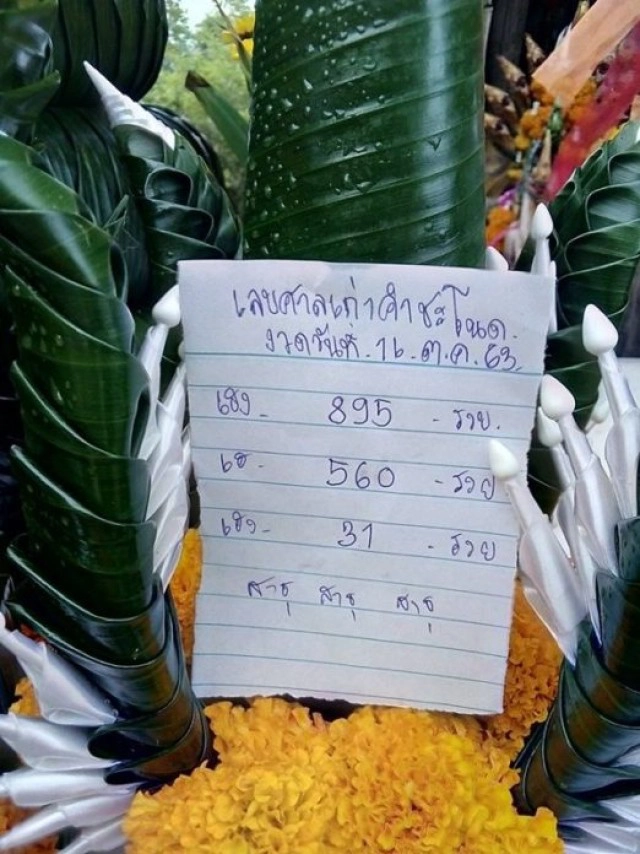 เลขศาลเก่าคำชะโนด.
งวดวันที่.16.ต.ค.63.
เฮง - 895 - รวย.
เฮ - 560 - รวย
เฮง - 31 - รวย
สาธุ สาธุ สาธุ